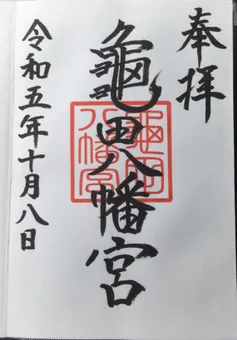 奉拝
龜田八幡宮
龜田八幡宮
令和五年十月八日